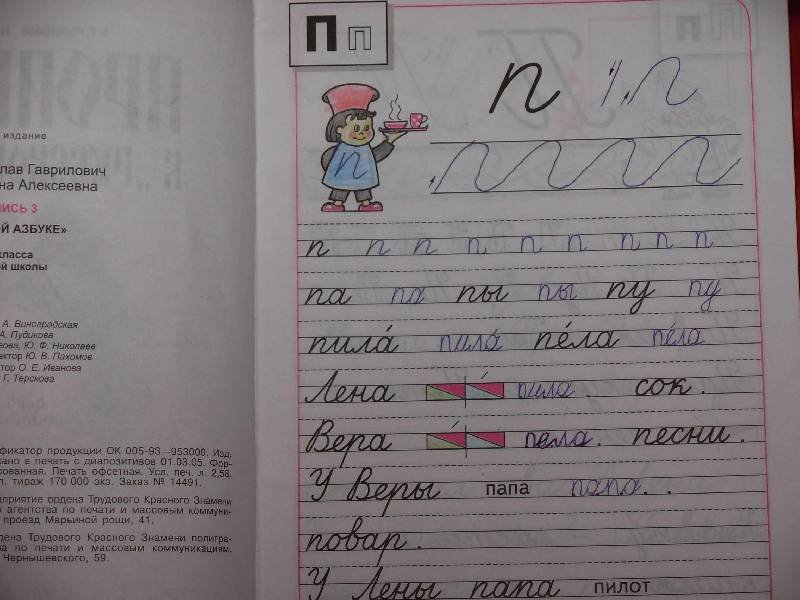 издание
лав Гаврилович
на Алексеевна
ИСЬ 3
ОЙ АЗБУКЕ»
класса
ой школы
А. Виноградская
А. Пудикова
ова, Ю. Ф. Николаев
актор Ю. В. Пахомов
ктор О. Е. Иванова
Г. Терскова
фикатор продукции ОК 005-93—953000. Изд.
сано в печать с диапозитивов 01.03.05. Фор-
сованная. Печать офсетная. Усл. печ. л. 2,58.
л. тираж 170 000 экз. Заказ № 14491.
едприятие ордена Трудового Красного Знамени
о агентства по печати и массовым коммуни-
проезд Марьиной рощи, 41.
рдена Трудового Красного Знамени полигра-
ва по печати и массовым коммуникациям.
Чернышевского, 59.
П п
п
п
п п п п п п п п п
па па пы пы пу пу
пила́ пила́ пе́ла пе́ла
Лена пила. сок.
Вера пела. песни.
У Веры папа папа..
повар.
У Лены папа пилот